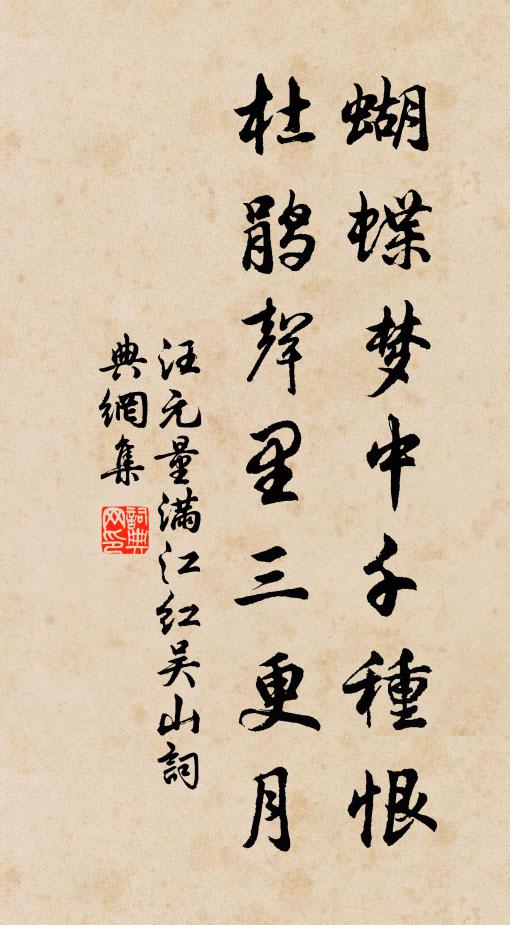 蝴蝶梦中千種恨
杜鹃聲里三更月
汪元量满江红吴山詞
典網集
詞典
网印